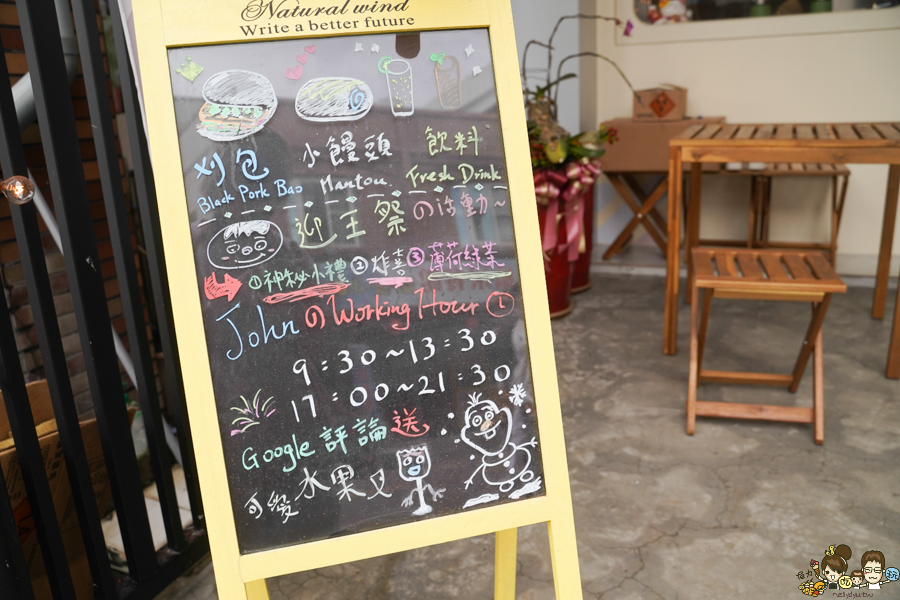 Natural wind
Write a better future
刈包 小饅頭 飲料
Black Pork Bao Mantou Fresh Drink
迎王祭の活動~
①神秘小禮 ②炸喜 ③薄荷綠茶
Johnのworking Hour
9:30~13:30
17:00~21:30
Google評論送
可愛水果叉